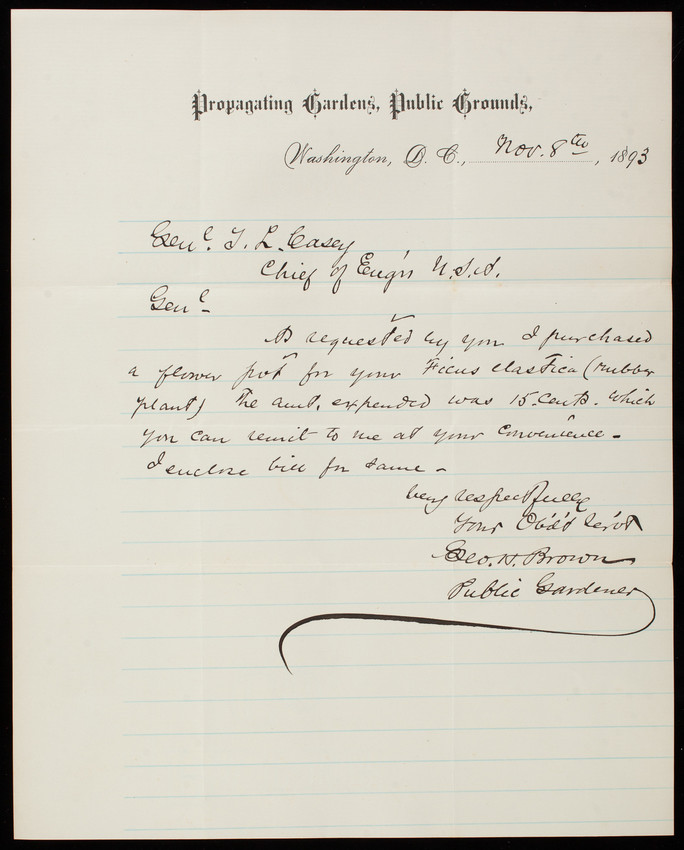 Propagating Gardens, Public Grounds,
Washington, D. C., Nov. 8th, 1893
Genl. T. L. Casey
Chief of Eng'rs U.S.A.
Genl-
As requested by you I purchased
a flower pot for your Ficus elastica (rubber
plant) The amt. expended was 15. cents. which
you can remit to me at your convenience-
I enclose bill for same-
Very respectfully
Your Obd't Serv't
Geo. H. Brown
Public Gardener